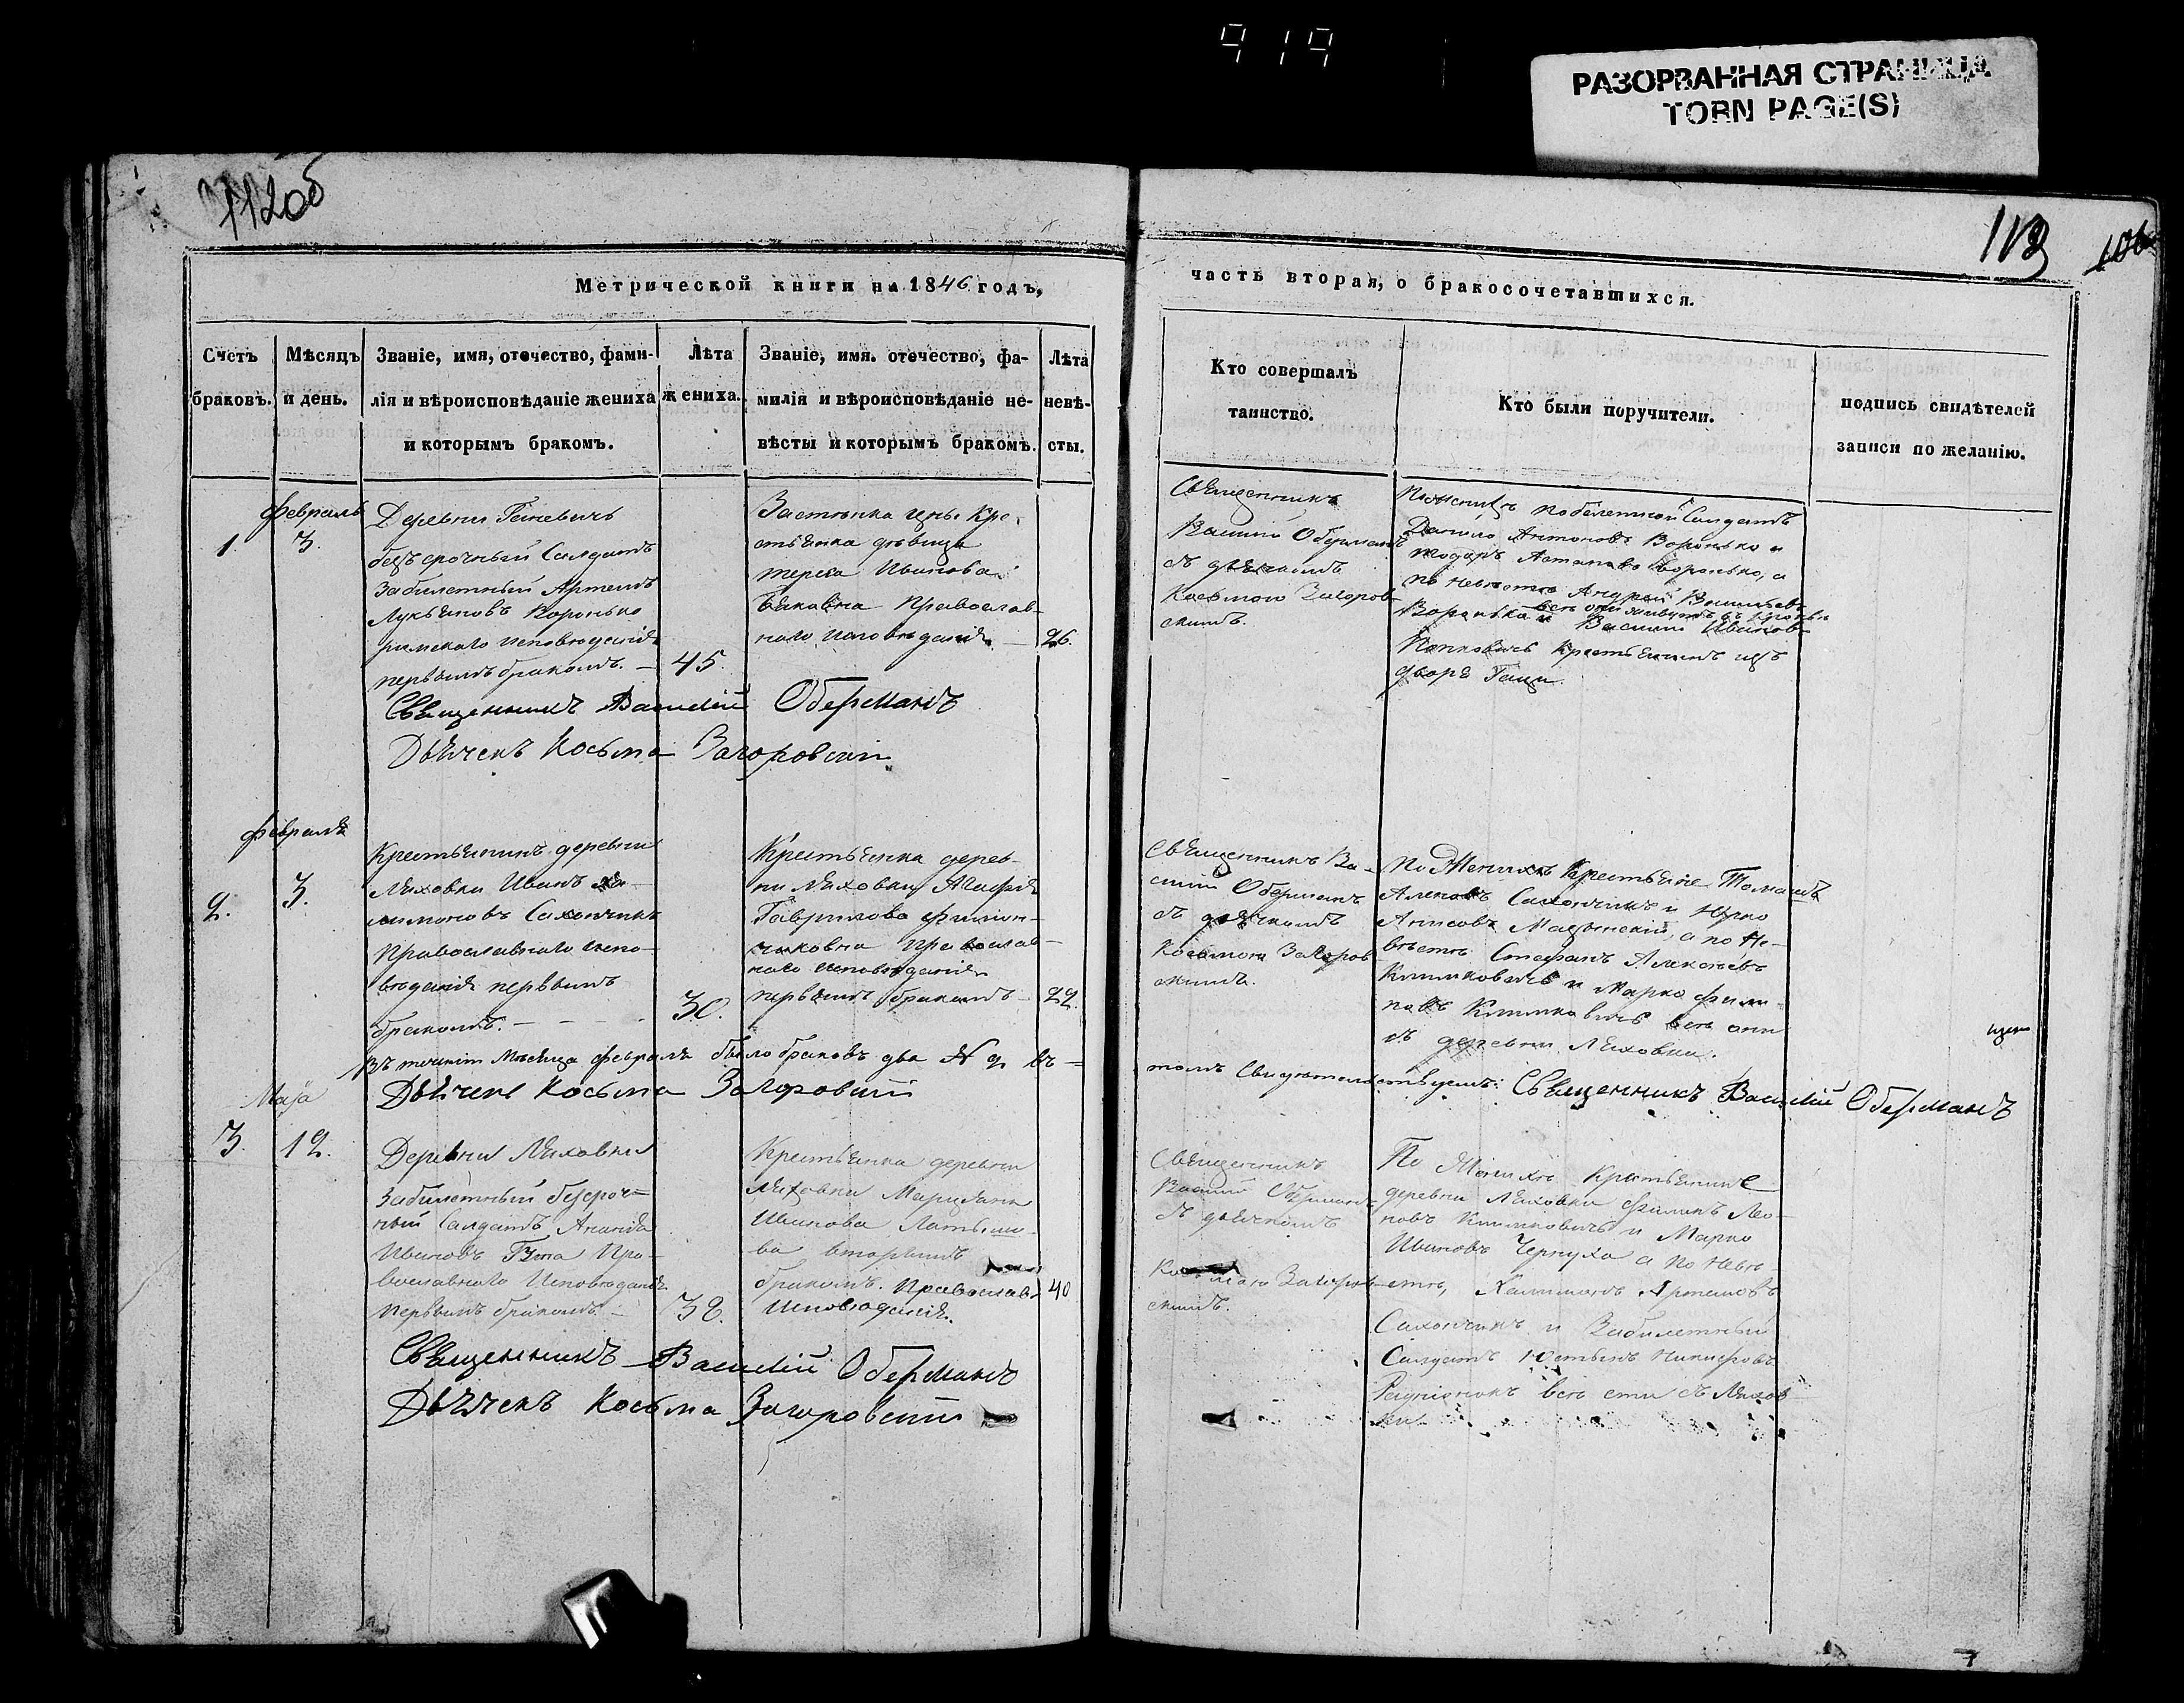 919
РАЗОРВАННАЯ СТРАНИЦА
TORN PAGE(S)
112об
113
106
Метрической книги на 1846 годъ,
часть вторая, о бракосочетавшихся.
Счетъ браковъ.
Мѣсяцъ и день.
Званіе, имя, отечество, фами-
лія и вѣроисповѣданіе жениха
и которымъ бракомъ.
Лѣта
жениха.
Званіе, имя. отечество, фа-
милія и вѣроисповѣданіе не-
вѣсты и которымъ бракомъ.
Лѣта
невѣ-
сты.
Кто совершалъ
таинство.
Кто были поручители.
подпись свидѣтелей
записи по желанію.
1.
Февраль
3.
Деревни
безсрочный Салдатъ
Забилетный Артемъ
Лукьяновъ Воронько
римскаго исповѣданія
первымъ бракомъ. —
45.
Застѣнка Кре-
стьянка дѣвица
Тереса Иванова
Православ-
наго исповѣданія —
26.
Священникъ
Василій Оберманъ
съ дьячкомъ
Косьмою Загоров-
скимъ.
Салдатъ
Данило Антоновъ Воронько и
Воронько, а
по невѣстѣ Андрей Васильевъ
Воронька и Василій Ивановъ
крестьянинъ изъ
двора
Священникъ Василій Оберманъ
Дьячекъ Косьма Загоровскій
2.
Февраля
3.
Крестьянинъ деревни
Ляховки Иванъ Ха-
лимоновъ Сахончикъ
Православнаго испо-
вѣданія первымъ
бракомъ. —
30.
Крестьянка дерев-
ни Ляховки Агафія
Гаврилова Филион-
чиковна православ-
наго исповѣданія
первымъ бракомъ —
22.
Священникъ Ва-
силій Оберманъ
съ дьячкомъ
Косьмою Загоров-
скимъ.
По Женихѣ Крестьяне Томашъ
Сахончикъ и Юрко
а по Не-
вѣстѣ Стефанъ Алексѣевъ
Климковичъ и Марко Фили-
повъ Климковичъ всѣ они
съ деревни Ляховки.
Въ теченіи Мѣсяца Февраля было браковъ два № 2 въ =
томъ Свидѣтельствуемъ: Священникъ Василій Оберманъ
Дьячекъ Косьма Загоровскій
3.
Маія
12.
Деревни Ляховки
Забилетный безсроч=
ный Салдатъ Ананія
Ивановъ Пра-
вославнаго Исповѣданія
первымъ бракомъ. —
38.
Крестьянка деревни
Ляховки Маріяна
Иванова Латышо-
ва вторымъ
бракомъ. Православ.
Исповѣданія.
40
Священникъ
Василій Оберманъ
съ дьячкомъ
Косьмою Загоров-
скимъ.
По Женихѣ Крестьяние
деревни Ляховки Филипъ Лео-
новъ Климковичъ и Марко
Ивановъ Чернуха а по Невѣ-
стѣ, Халимонъ Артемовъ
Сахончикъ и Забилетный
Салдатъ Никифоровъ
всѣ съ Ляхов-
ки
Священникъ Василій Оберманъ
Дьячекъ Косьма Загоровскій